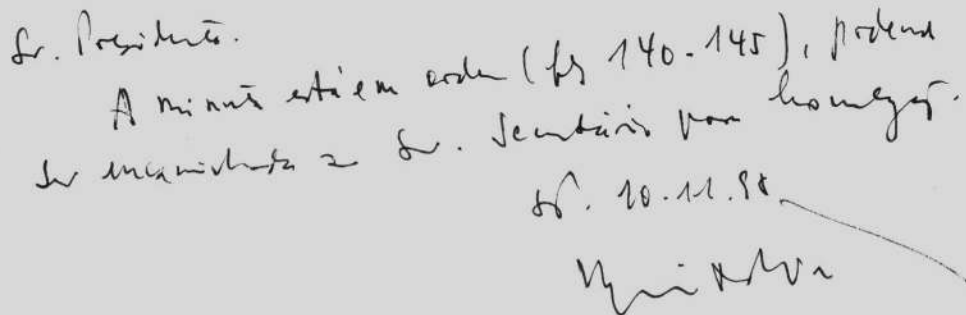 Sr. Presidente.
A minuta está em ordem (fls 140-145), podendo
ser encaminhada ao Sr. Secretário para homologação.
SP. 10.11.98